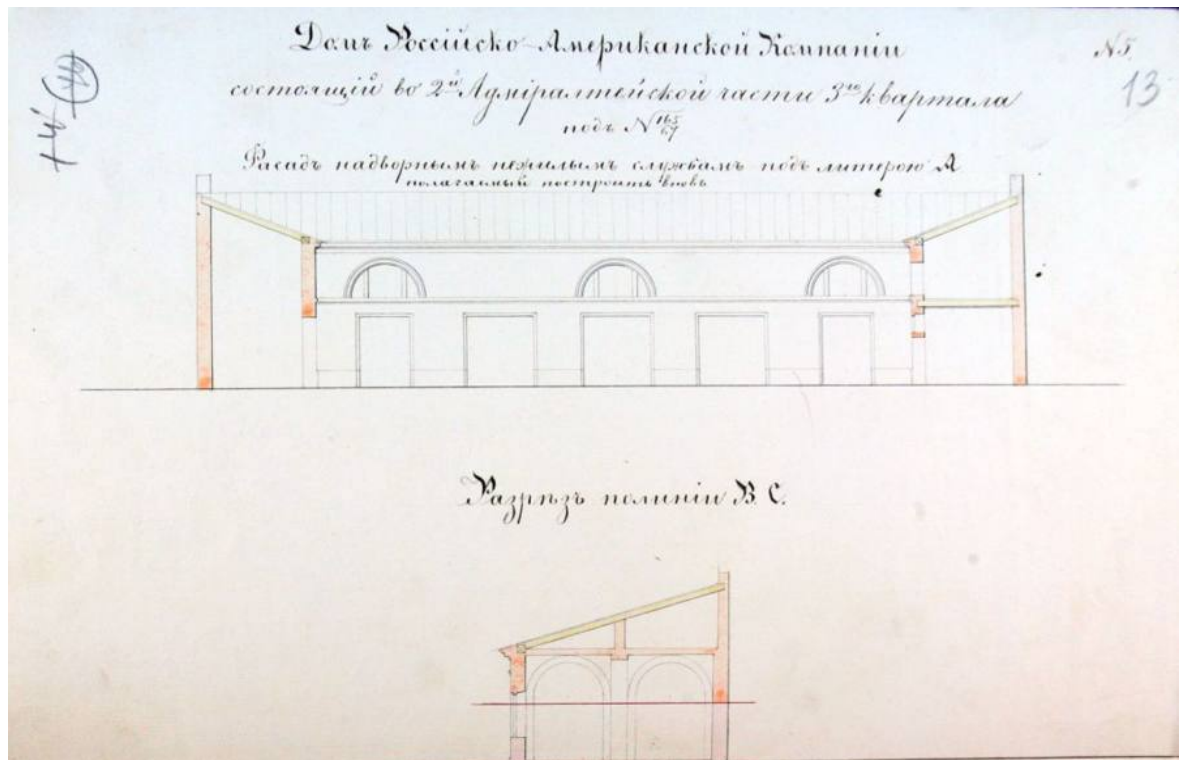 Домъ Россійско-Американской Компаніи
состоящій во 2й Адміралтейской части 3го квартала
подъ N 165/67
Фасадъ надворнымъ нежилымъ службамъ подъ литерою А
полагаемый построить вновь
N 5.
13
Разрѣзъ по линіи В. С.